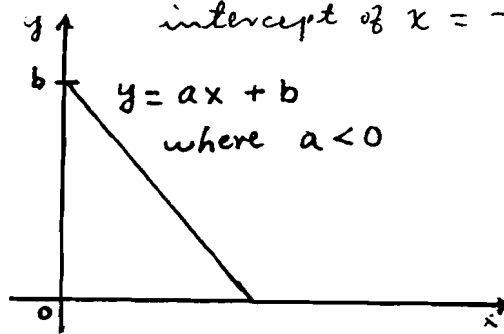 y
intercept of x = -
b
y = ax + b
where a < 0
0
x